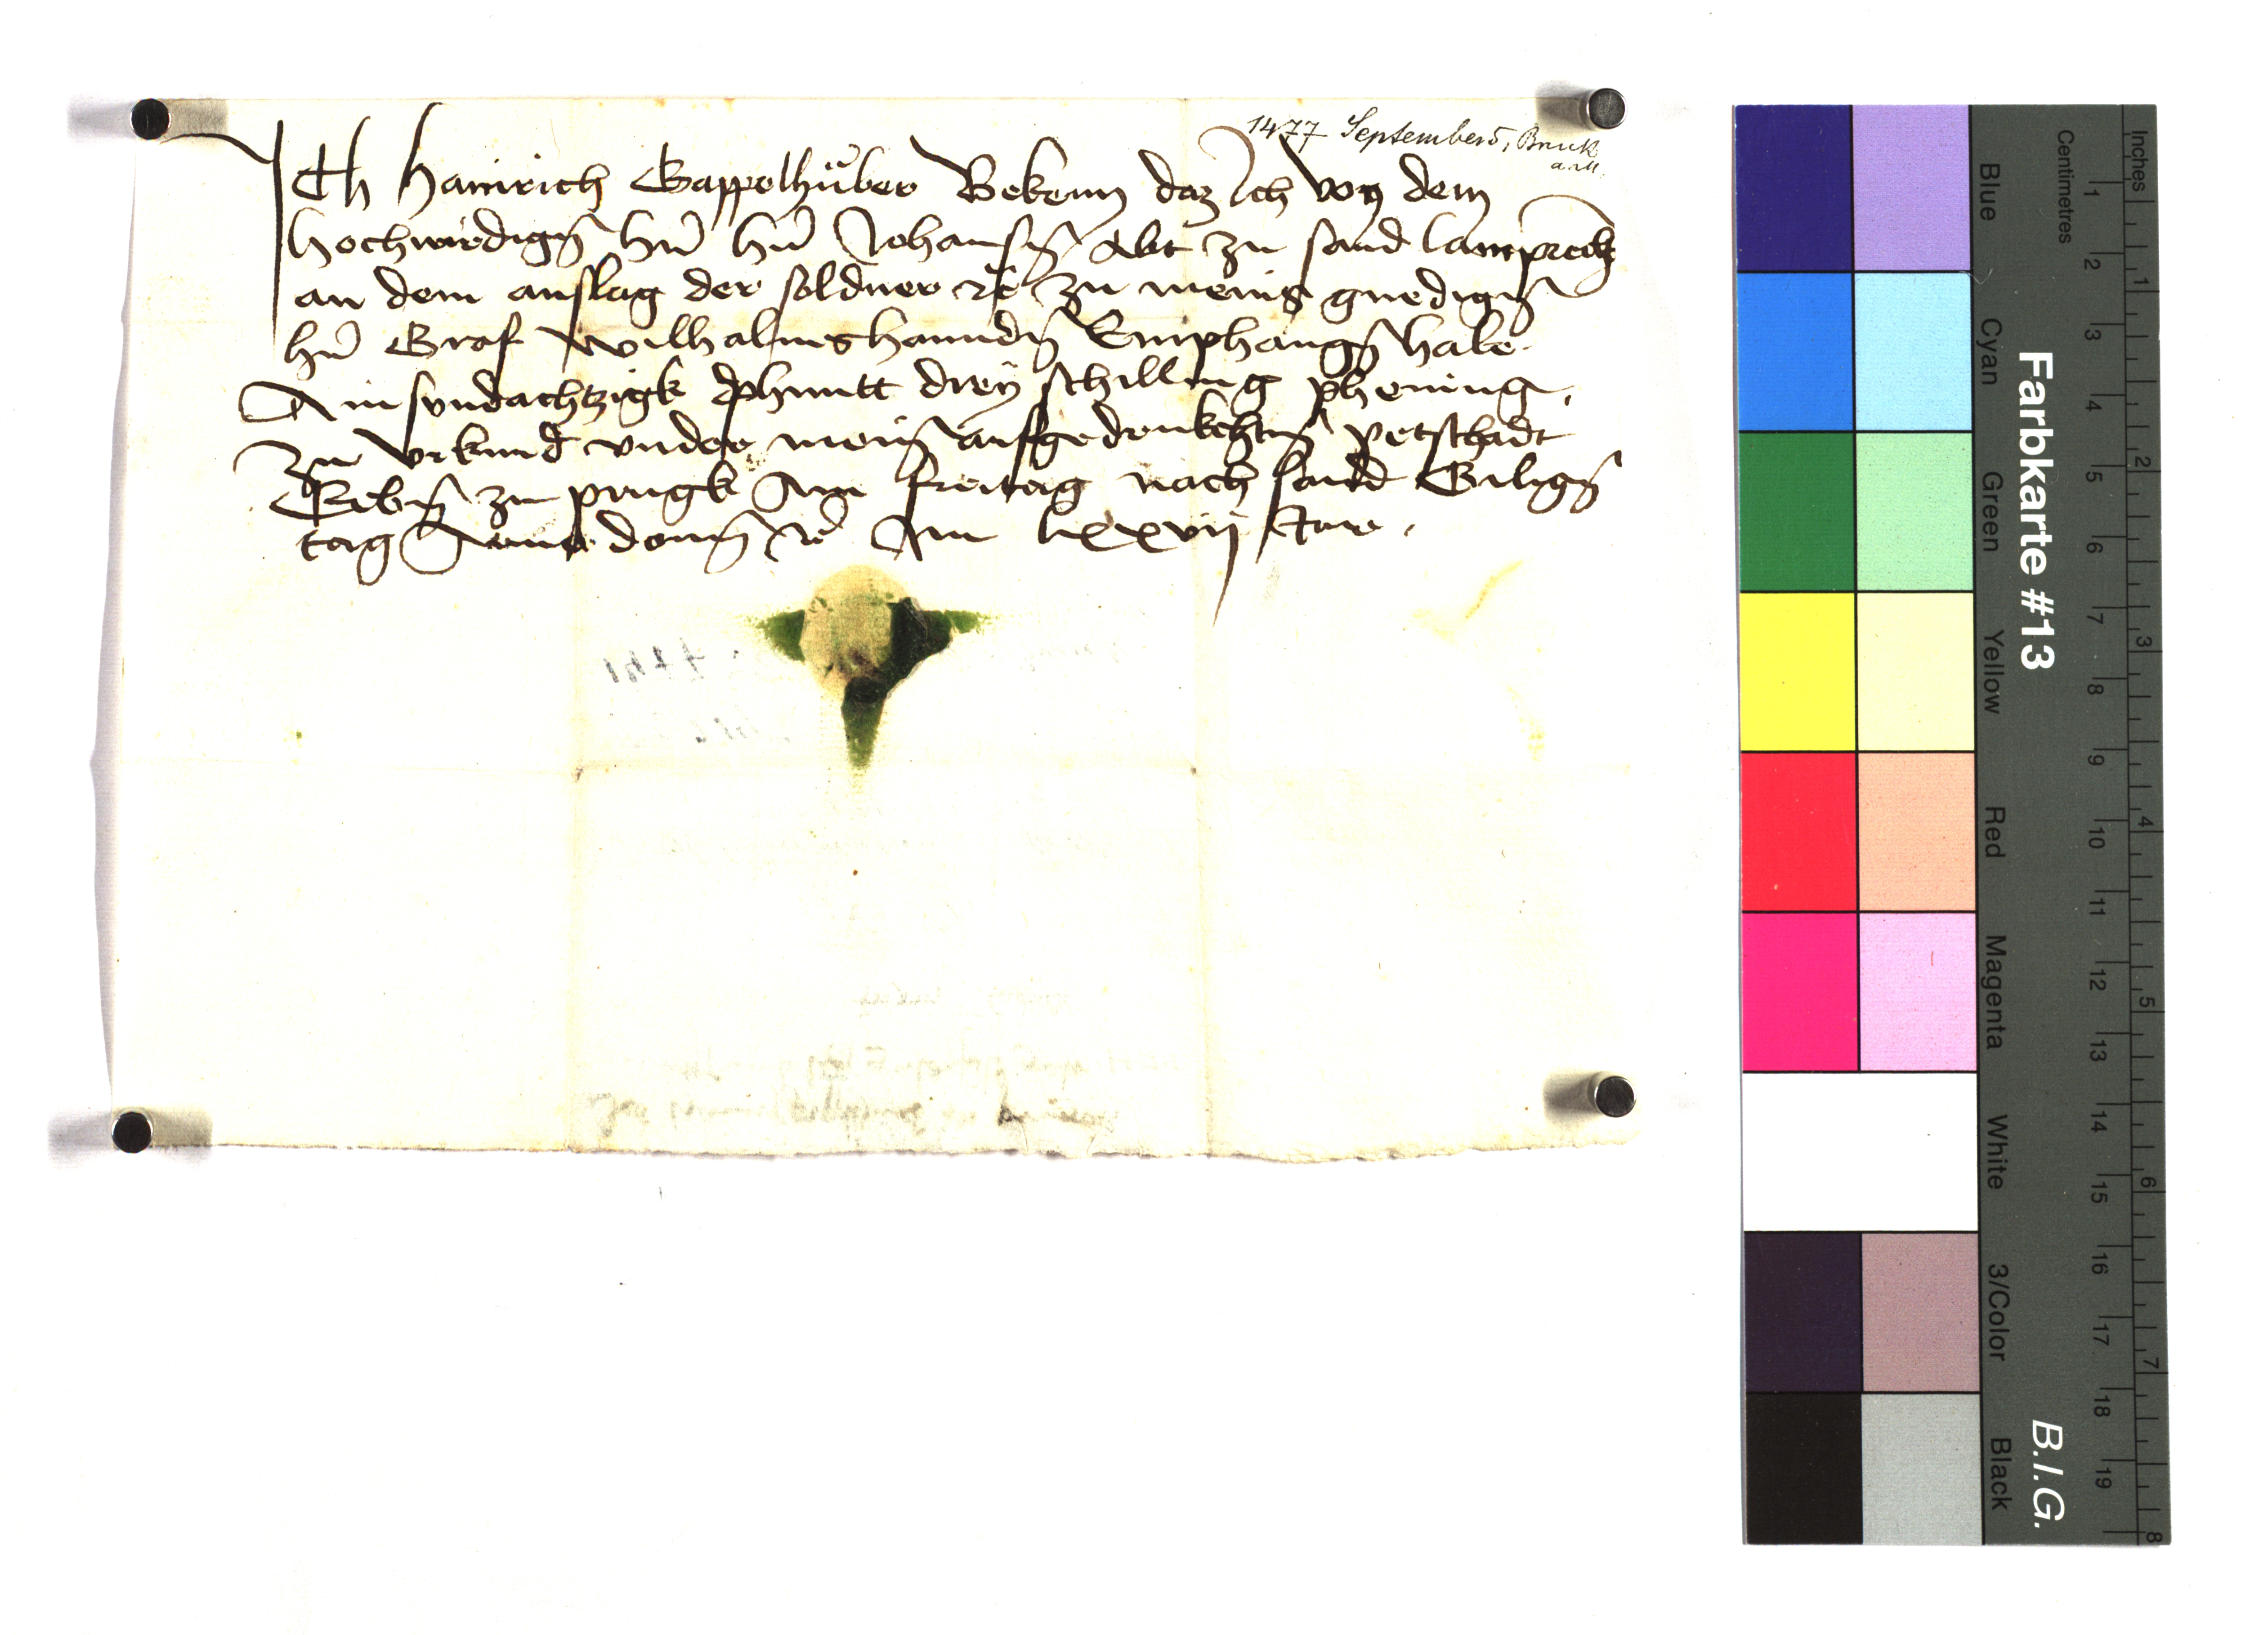 1477 September 5, Bruck
a. M.
Ich Hainrich Gappelhuͤber Bekenn daz Ich von dem
hochwirdigen hrn hrn Johansen Abt zu sand lamprecht
an dem anslag der soldner etc zu meins gnedigen
hrn Graf Wilhalms hannden Emphangen habe
Ainsundachtzigk phuntt drey schilling phening,
zu vrkund vnder meinem aufgedrukchten petschadt
Geben zu prugk Am freitag nach sand Giligen
tag Anno domini etc Im lxxvij Jare.
Farbkarte #13
B.I.G.
Inches 1 2 3 4 5 6 7 8
Centimetres 1 2 3 4 5 6 7 8 9 10 11 12 13 14 15 16 17 18 19
Blue
Cyan
Green
Yellow
Red
Magenta
White
3/Color
Black